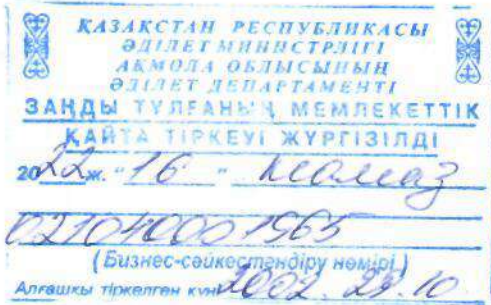 ҚАЗАҚСТАН РЕСПУБЛИКАСЫ
ӘДІЛЕТ МИНИСТРЛІГІ
АҚМОЛА ОБЛЫСЫНЫҢ
ӘДІЛЕТ ДЕПАРТАМЕНТІ
ЗАҢДЫ ТҰЛҒАНЫҢ МЕМЛЕКЕТТІК
ҚАЙТА ТІРКЕУІ ЖҮРГІЗІЛДІ
2022 ж. "16" тамыз
021040001965
(Бизнес-сәйкестендіру нөмірі)
Алғашқы тіркелген күні 2002.